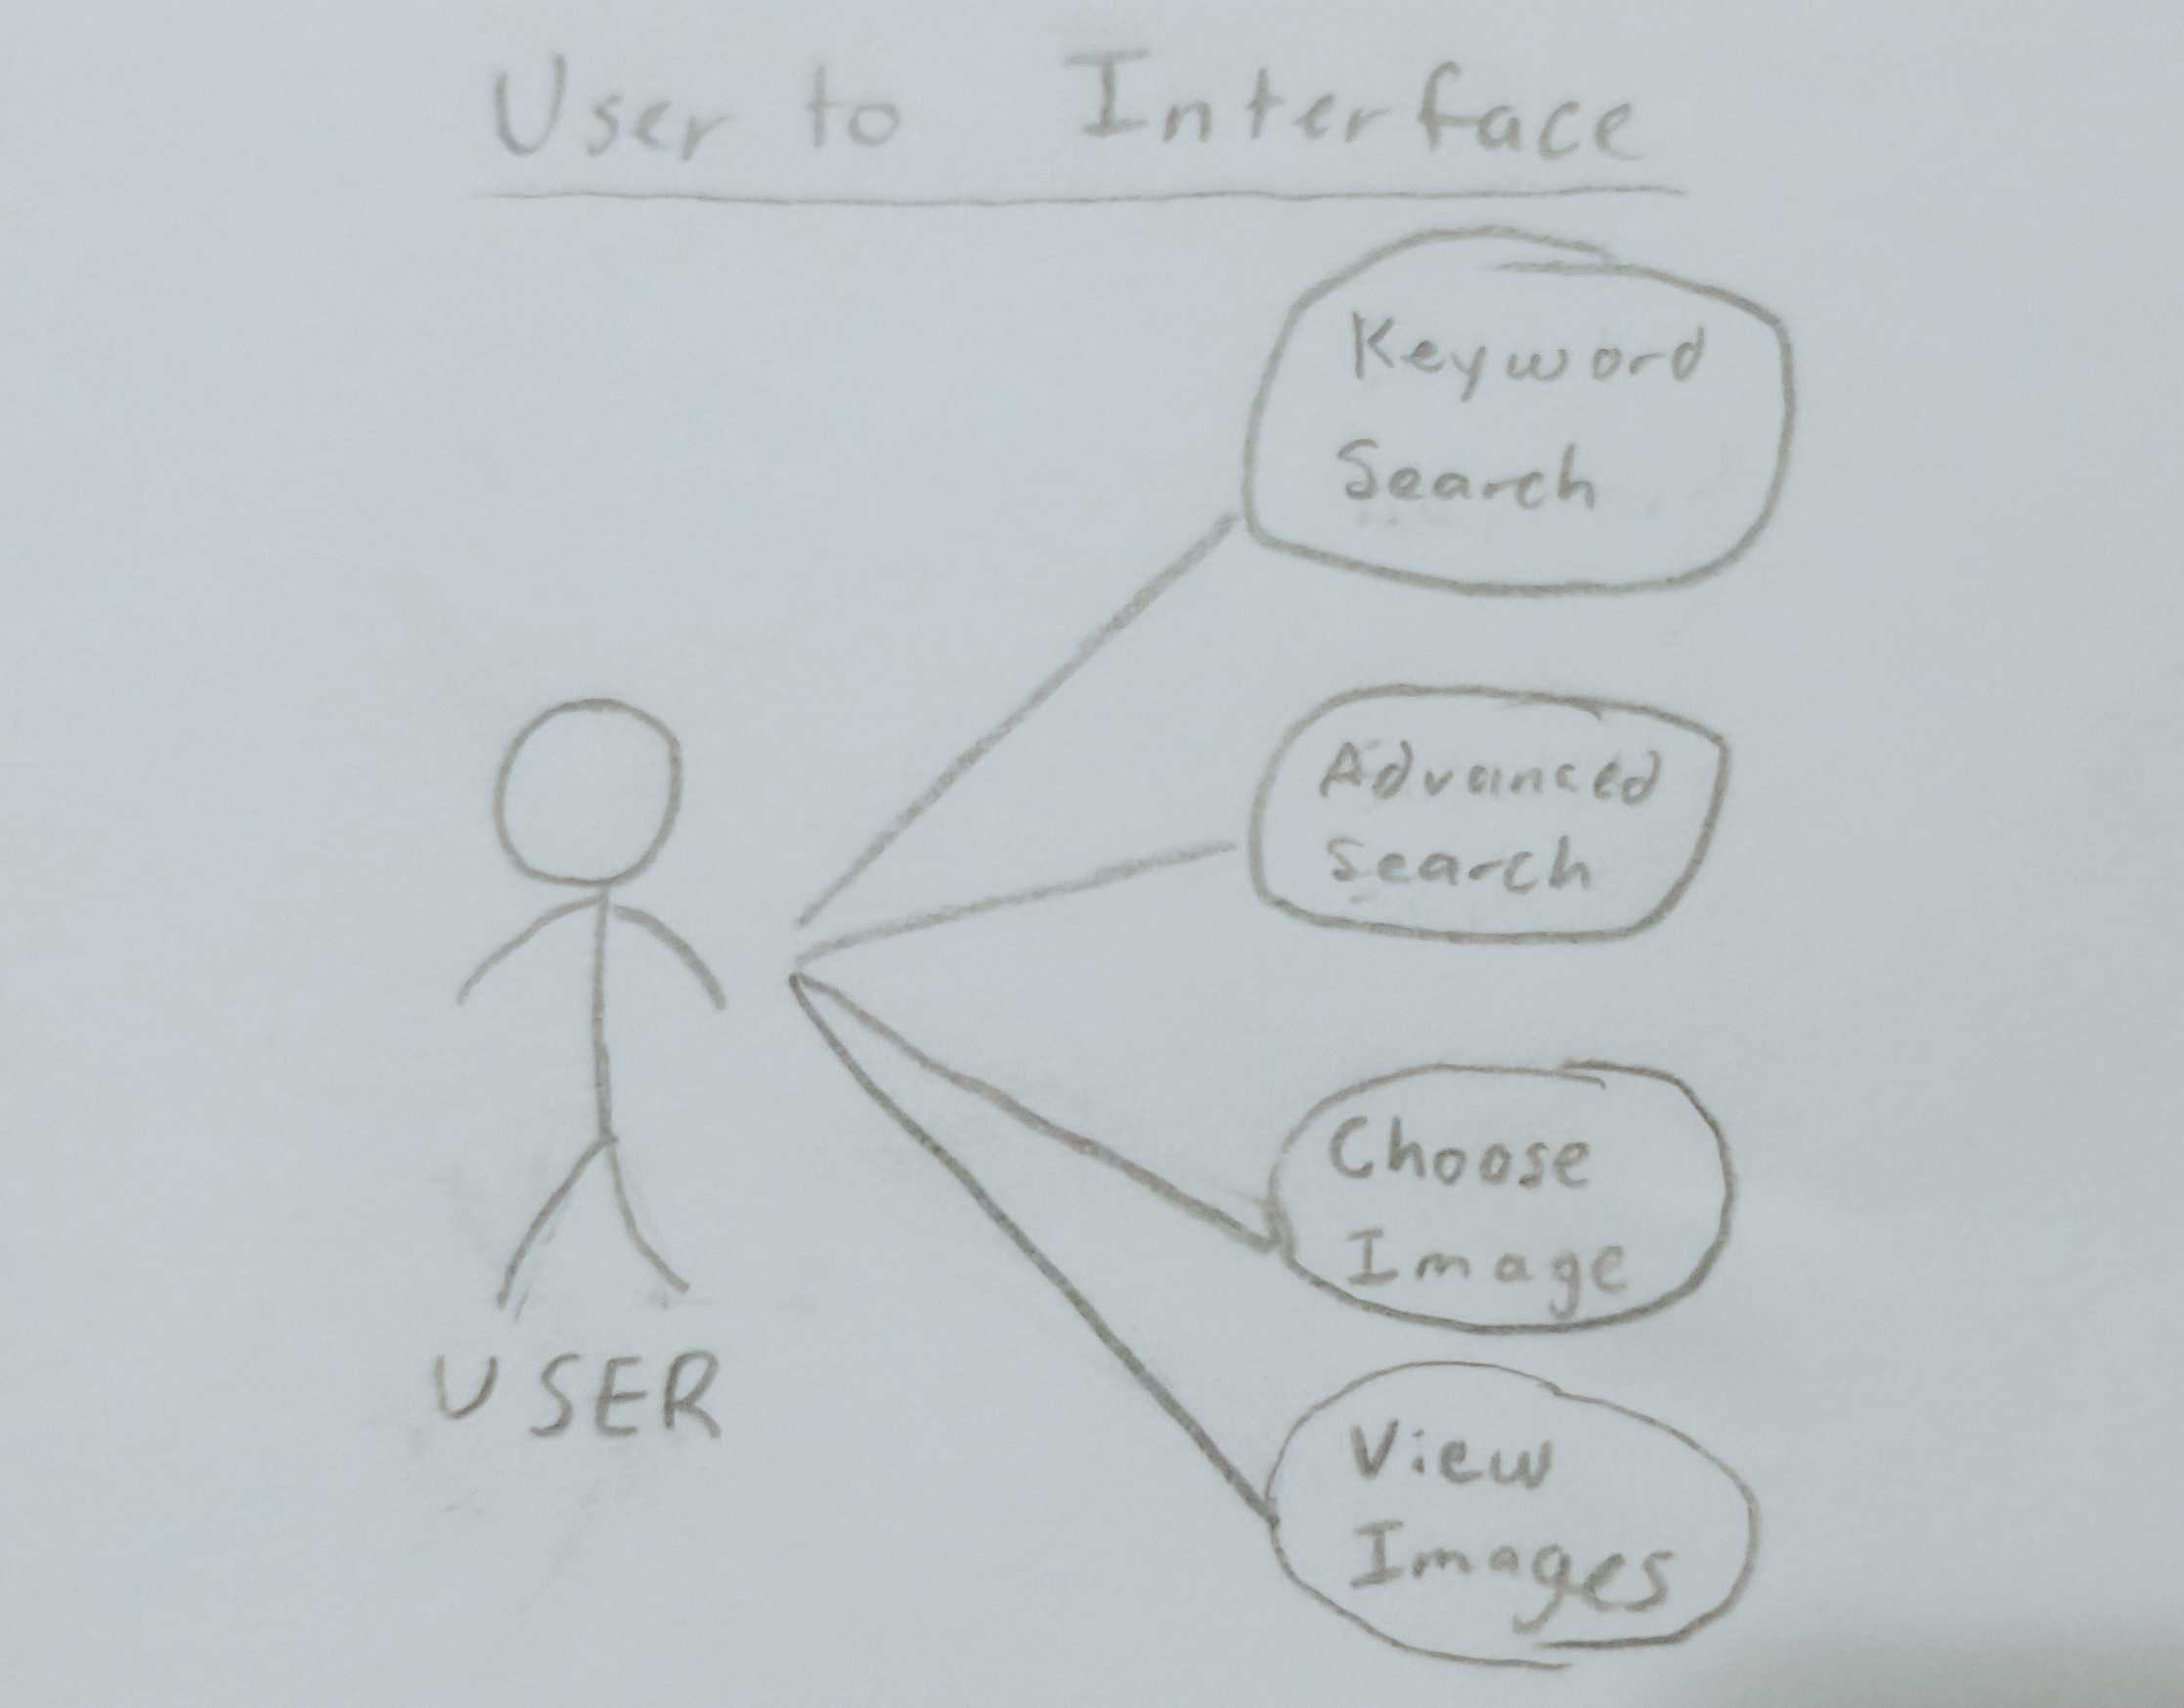 User to Interface
Keyword
Search
Advanced
Search
Choose
Image
USER
View
Images